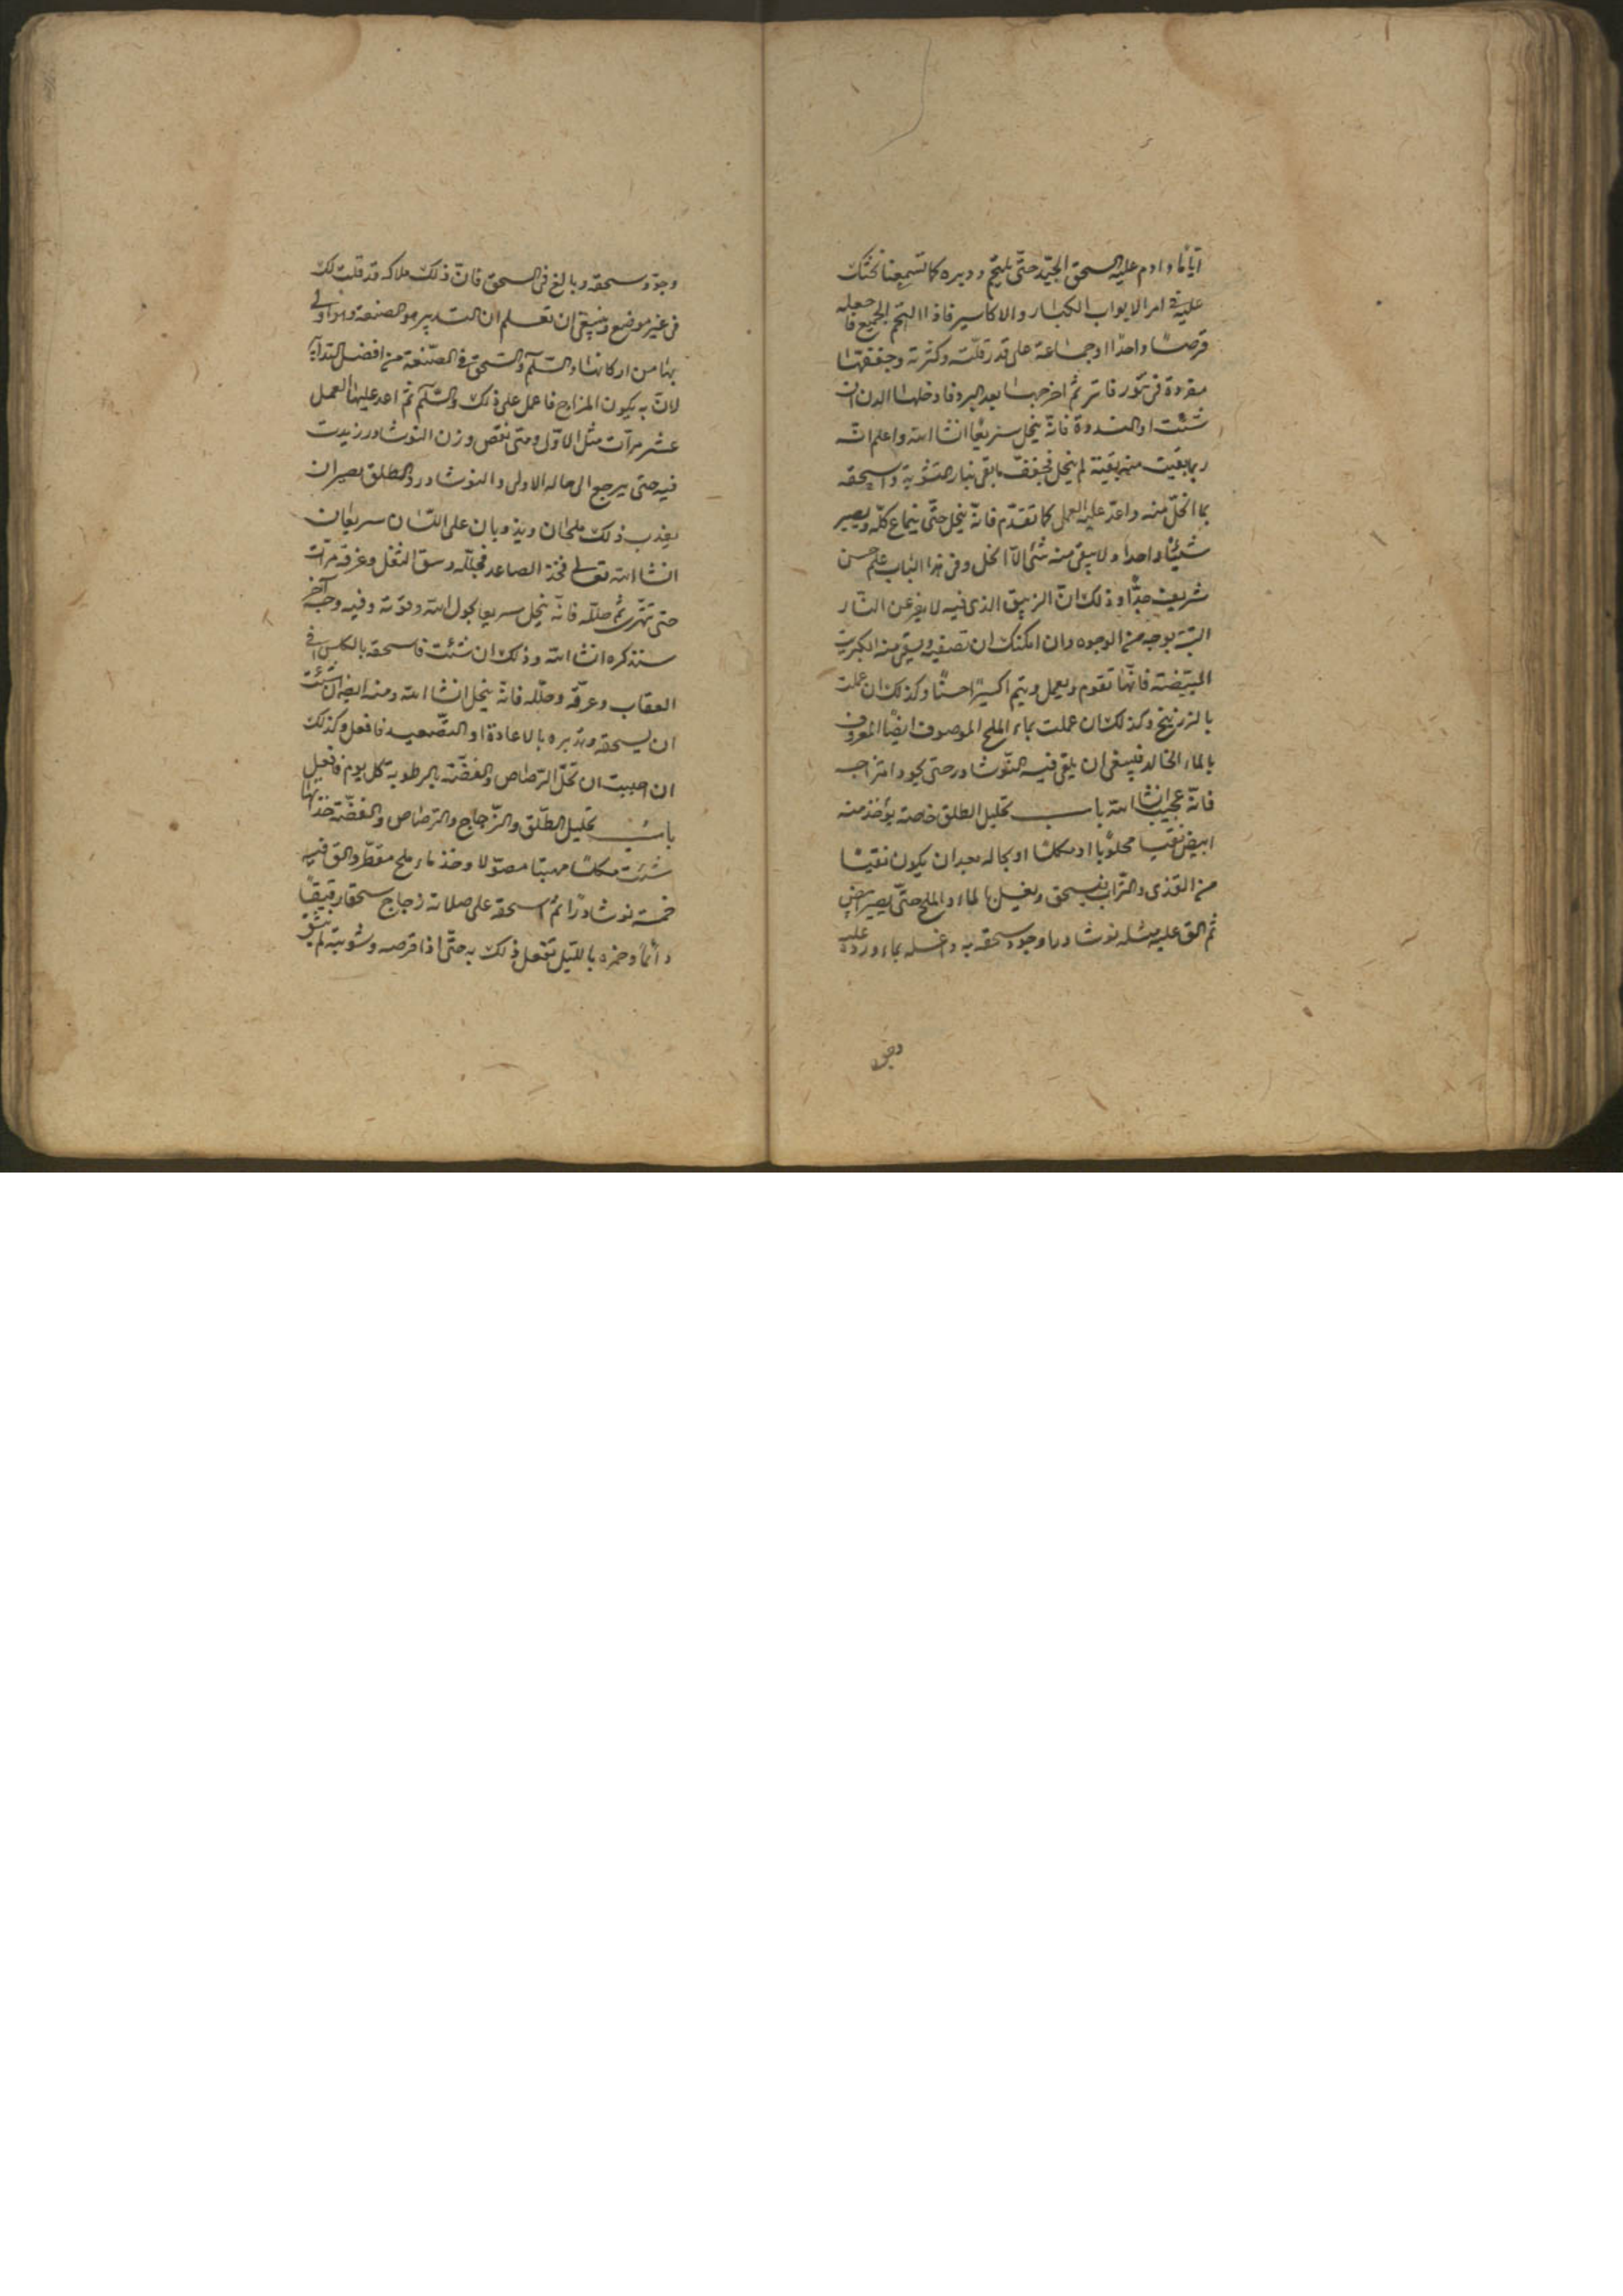 ايّامًا وادم عليه السحق الجيّد حتّى يلتحم ودبره كما تسمعنا نحثّك
عليه فى امر الابواب الكبار والاكاسير فاذا التحم الجميع فاجعله
قرصًا واحدًا او جماعة على قدر قلّته وكثرته وجففها
مفردة فى تنّور فاتر ثمّ اخرجها بعد البرد فادخلها الدن ان
شئت او الندوة فانّه ينحل سريعًا انشا الله واعلم انّه
ربما بقيت منه بقيّة لم ينحل فجفف ما بقى بنار التشوية واسحقه
بما انحلّ منه واعد عليه العمل كما تقدّم فانّه ينحل حتّى ينماع كلّه ويصير
شيئًا واحدا ولا يبقى منه شئ الّا انحل وفى هذا الباب علم حسن
شريف جدًّا وذلك انّ الزيبق الذى فيه لا يفرّ عن النّار
البتة بوجه من الوجوه وان امكنك ان تضيفه ويسقى من الكبريت
المبيّضة فانّها تقوم ويعمل ويتم اكسيرًا حسنًا وكذلك ان عملت
بالزرنيخ وكذلك ان عملت بماء الملح الموصوف ايضًا المعروف
بالماء الخالد فينبغى ان يلقى فيه النّوشادر حتى يجود امتزاجه
فانّه عجيب انشا الله باب تحليل الطلق خاصة يؤخذ منه
ابيض نقيا محلوبا او مكلسا او بحاله بعد ان يكون نقيًا
من القذى والتّراب فيسحق ويغسل بالماء والملح حتّى يصير ابيض
ثم الق عليه مثله نوشادرا وجود سحقه به واغسله بماء ورده عليه
وجوّد سحقه وبالغ فى السحق فانّ ذلك ملاكه قد قلت لك
فى غير موضع وينبغى ان تعلم ان التدبير هو الصنعة وهو اولى
بها من اركانها والسّلم والسّحق فى الصّنعة من افضل التدابير
لانّ به يكون المزاج فاعمل على ذلك والسّلم ثم اعد عليها العمل
عشر مرّات مثل الاوّل ومتى نقص وزن النوشادر زيدت
فيه حتى يرجع الى حاله الاولى والنوشادر والطلق يصيران
بعذب ذلك ملحان ويذوبان على اللّسان سريعان
انشا الله تعالى فخذ الصاعد فحلّله وسق الثفل وغرقه مرّات
حتى تهرّى ثمّ حلّله فانّه ينحل سريعا بحول الله وقوّته وفيه وجه آخر
سنذكره انشا الله وذلك ان شئت فاسحقه بالكلس او فى
العقاب وعرّقه وحلّله فانّه ينحل انشا الله ومنه ايضا ان شئت
ان يسحقه وتدبره بالاعادة او التصّعيد فافعل وكذلك
ان احببت ان تحلّ الرّصاص والفضّة بالرطوبة كل يوم فافعل
باب تحليل الطّلق والزّجاج والرّصاص والفضّة خذ ايّها
شئت مكلسا مهبئا مصوّلا وخذ ماء ملح مقطّر والق فيه
خمسة نوشادرًا ثمّ اسحقه على صلاية زجاج سحقا رقيقًا
دائمًا وخمره باللّيل تفعل ذلك به حتّى اذا قرصه وشويته لم يتشقّق